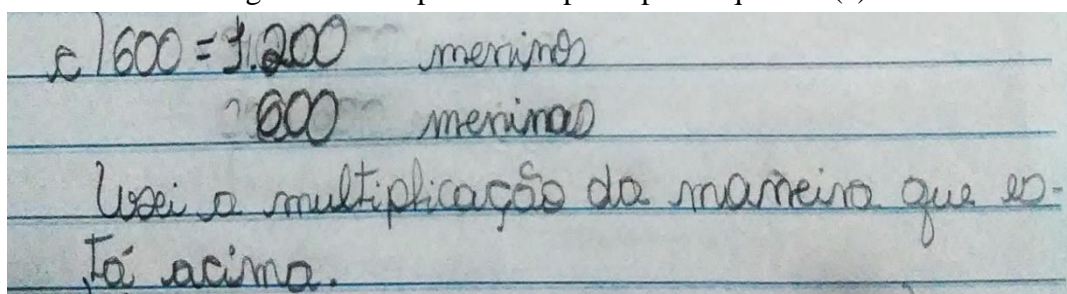 c) 600 = 1.200 meninos
600 meninas
Usei a multiplicação da maneira que es-
tá acima.